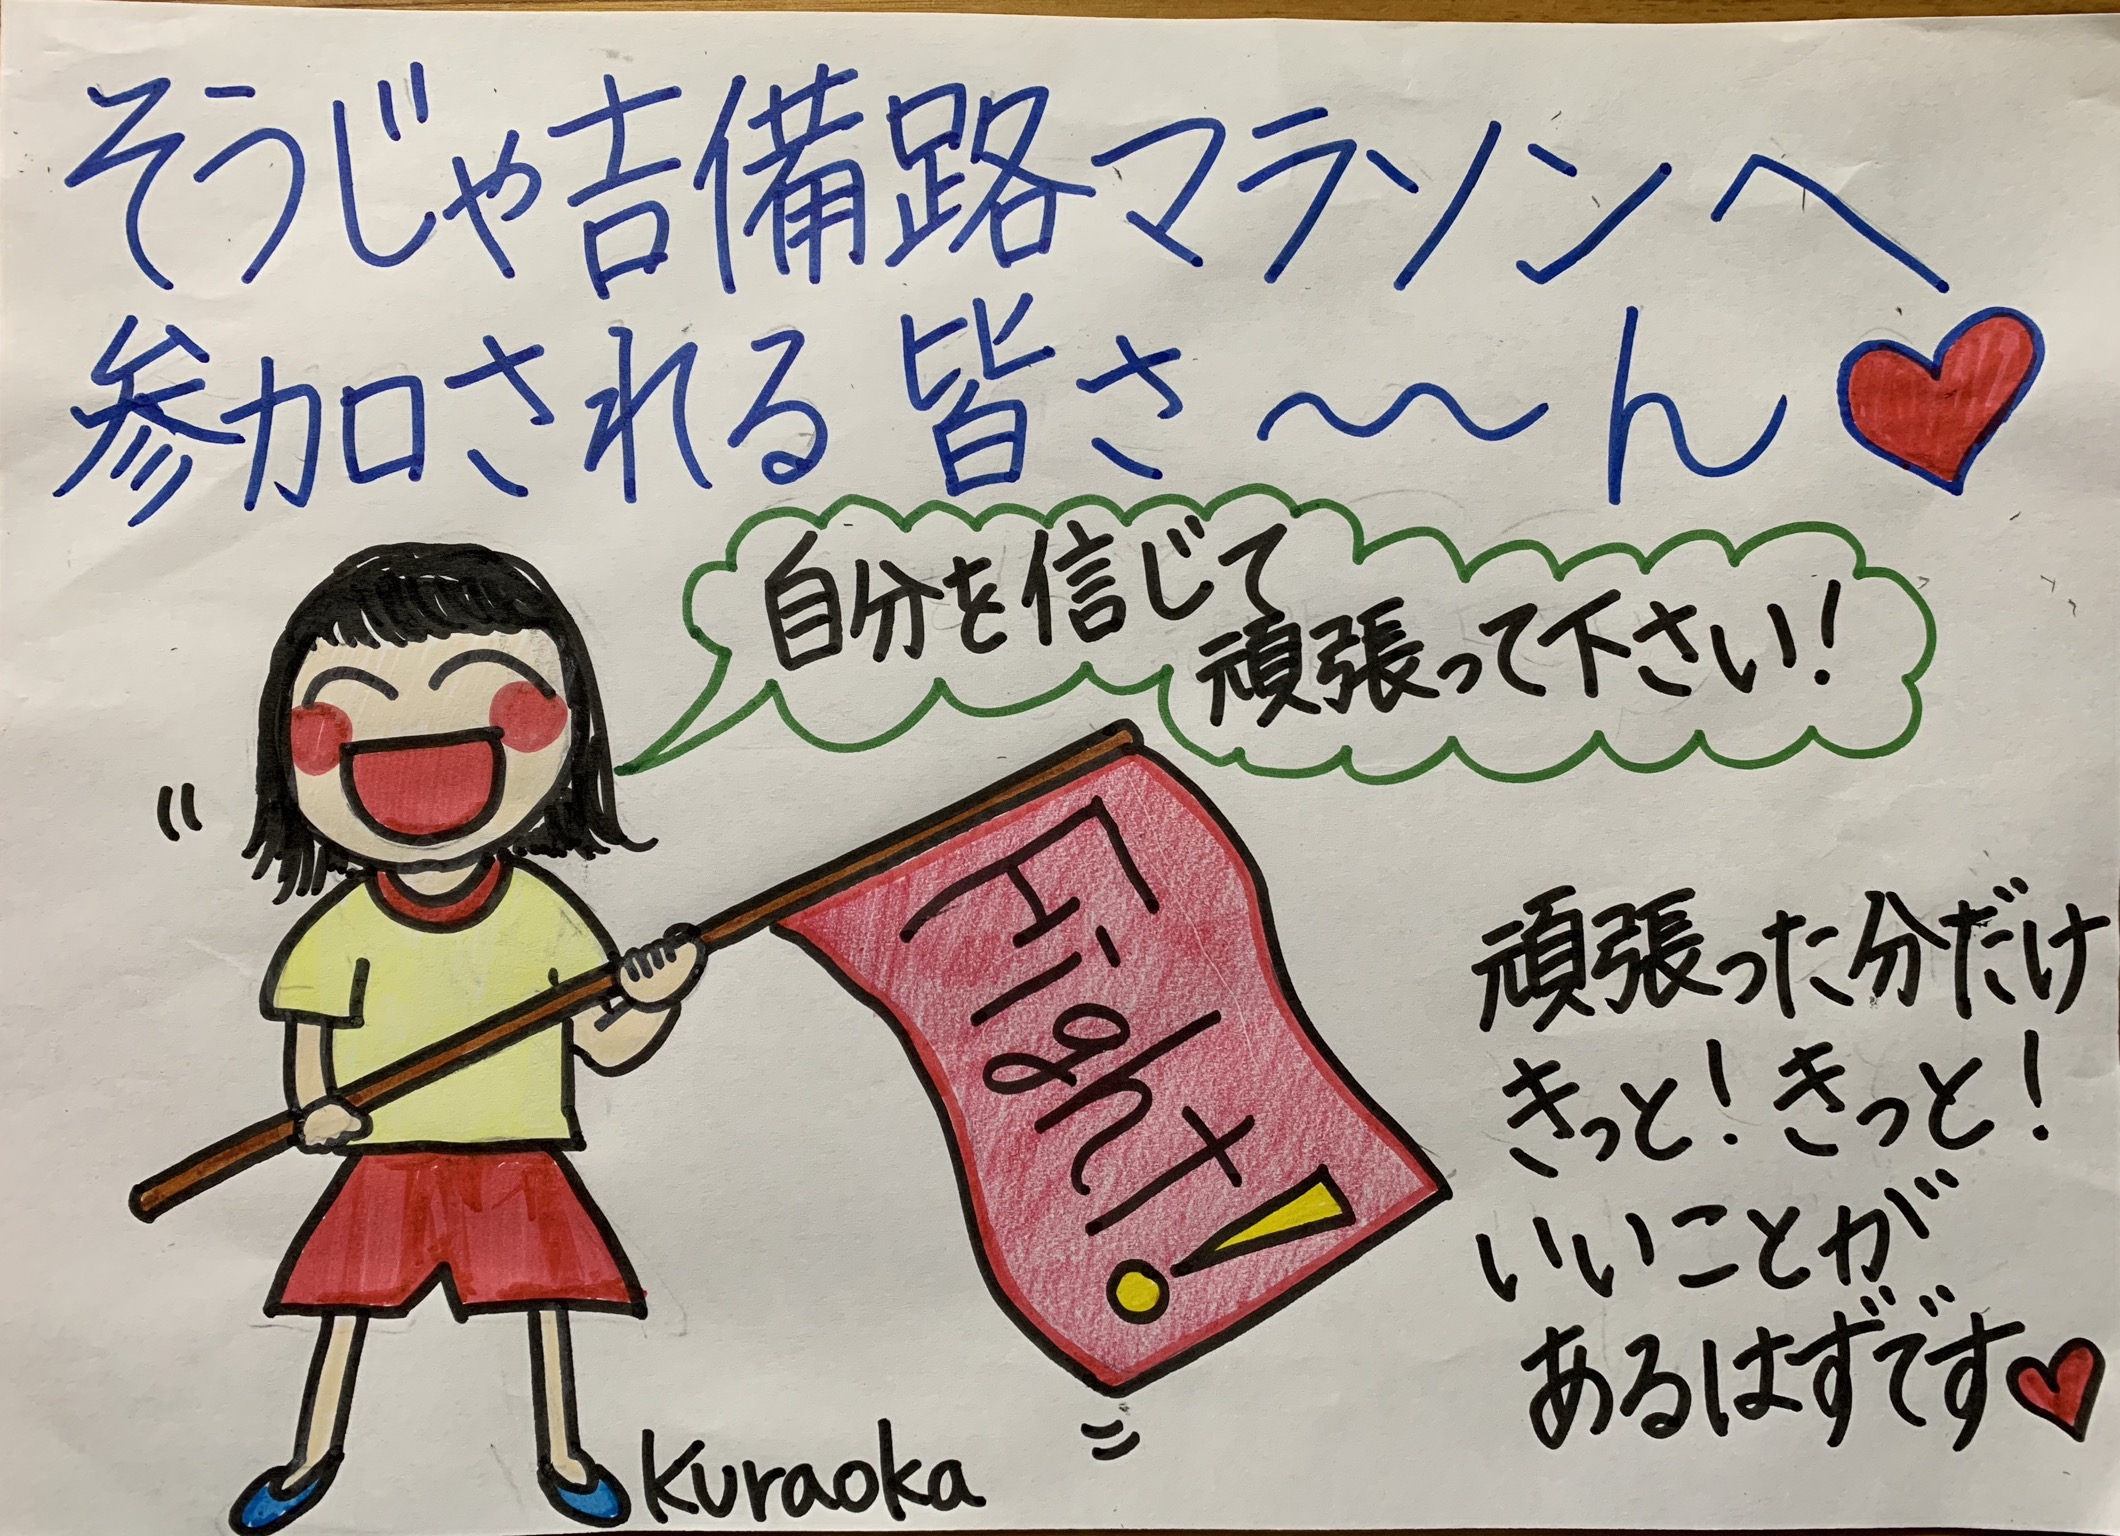 そうじゃ吉備路マラソンへ
参加される皆さ～～ん
自分を信じて
頑張って下さい!
Fight!
頑張った分だけ
きっと!きっと!
いいことが
あるはずです
Kuraoka